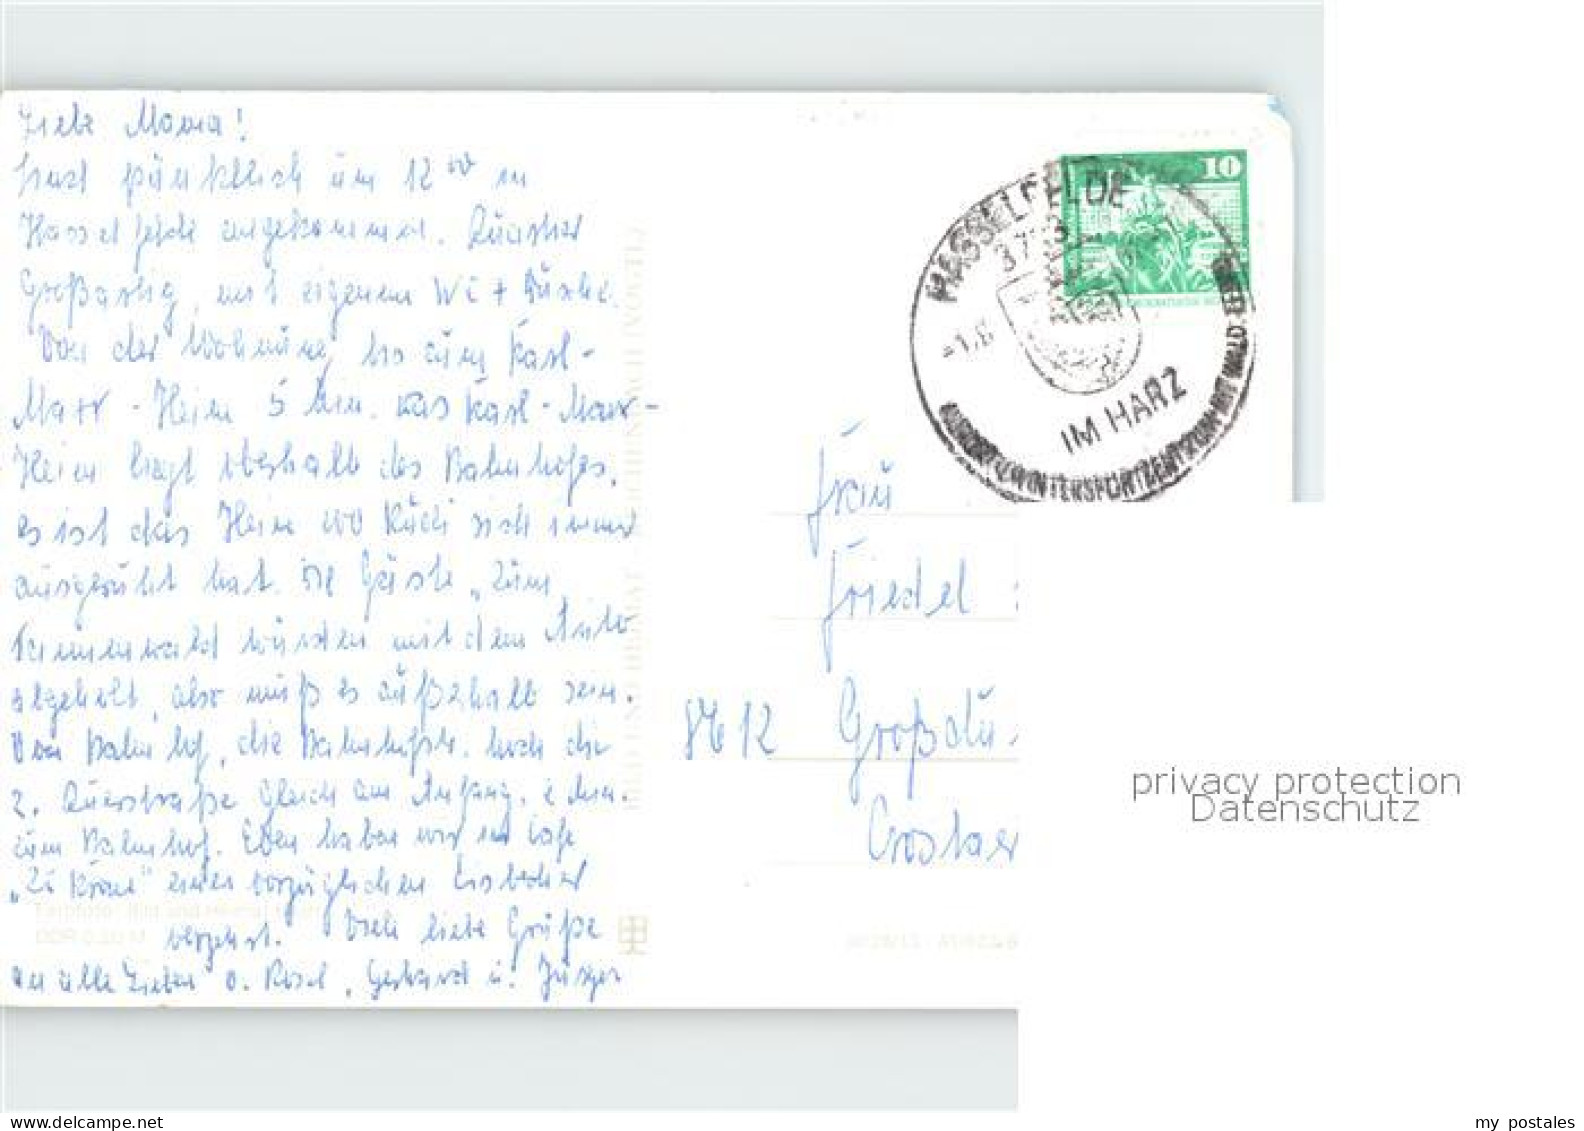 Liebe Mama!
Sind pünktlich um 12 00 in
Hasselfelde angekommen. Quartier
Großartig, mit eigenem WC + Dusche.
Von der Wohnung bis zum Karl-
Marx - Heim 5 Min. Das Karl-Marx-
Heim liegt oberhalb des Bahnhofes.
es ist das Heim wo sich immer
ausgeruht hat. Die Gäste „Zum
Tannenwald würden mit dem Auto
abgeholt, also muß es außerhalb sein.
Vom Bahnhof, die Bahnhofstr. hoch die
2. Querstraße gleich am Anfang. 2 Min.
zum Bahnhof. Eben haben wir im Cafe
„Zur Krone" einen vorzüglichen Eisbecher
verzehrt. Viele liebe Grüße
an alle Lieben v. Rosel, Gerhard u. Jürgen
HASSELFELDE
IM HARZ
10
Frau
Friedel
8612 Großdu
Crostaer
privacy protection
Datenschutz
my postales